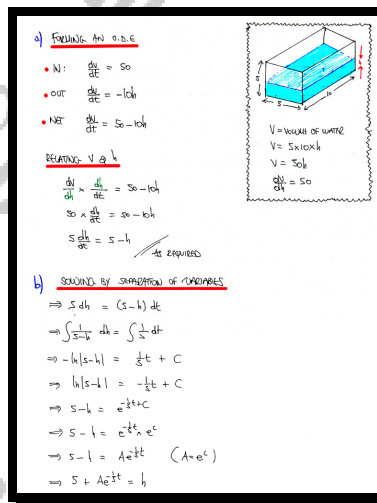 a) FORMING AN O.D.E
• IN: dv/dt = 50
• OUT dv/dt = -10h
• NET dv/dt = 50 - 10h
RELATING V & h
dv/dh × dh/dt = 50 - 10h
50 × dh/dt = 50 - 10h
5 dh/dt = 5 - h
AS REQUIRED
5
h
5
10
V = VOLUME OF WATER
V = 5×10×h
V = 50h
dv/dh = 50
b) SOLVING BY SEPARATION OF VARIABLES
⇒ 5 dh = (5-h) dt
⇒ ∫ 1/(5-h) dh = ∫ 1/5 dt
⇒ -ln|5-h| = 1/5 t + C
⇒ ln|5-h| = -1/5 t + C
⇒ 5-h = e^(-1/5 t + C)
⇒ 5 - h = e^(-1/5 t) × e^c
⇒ 5 - h = Ae^(-1/5 t) (A = e^c)
⇒ 5 + Ae^(-1/5 t) = h